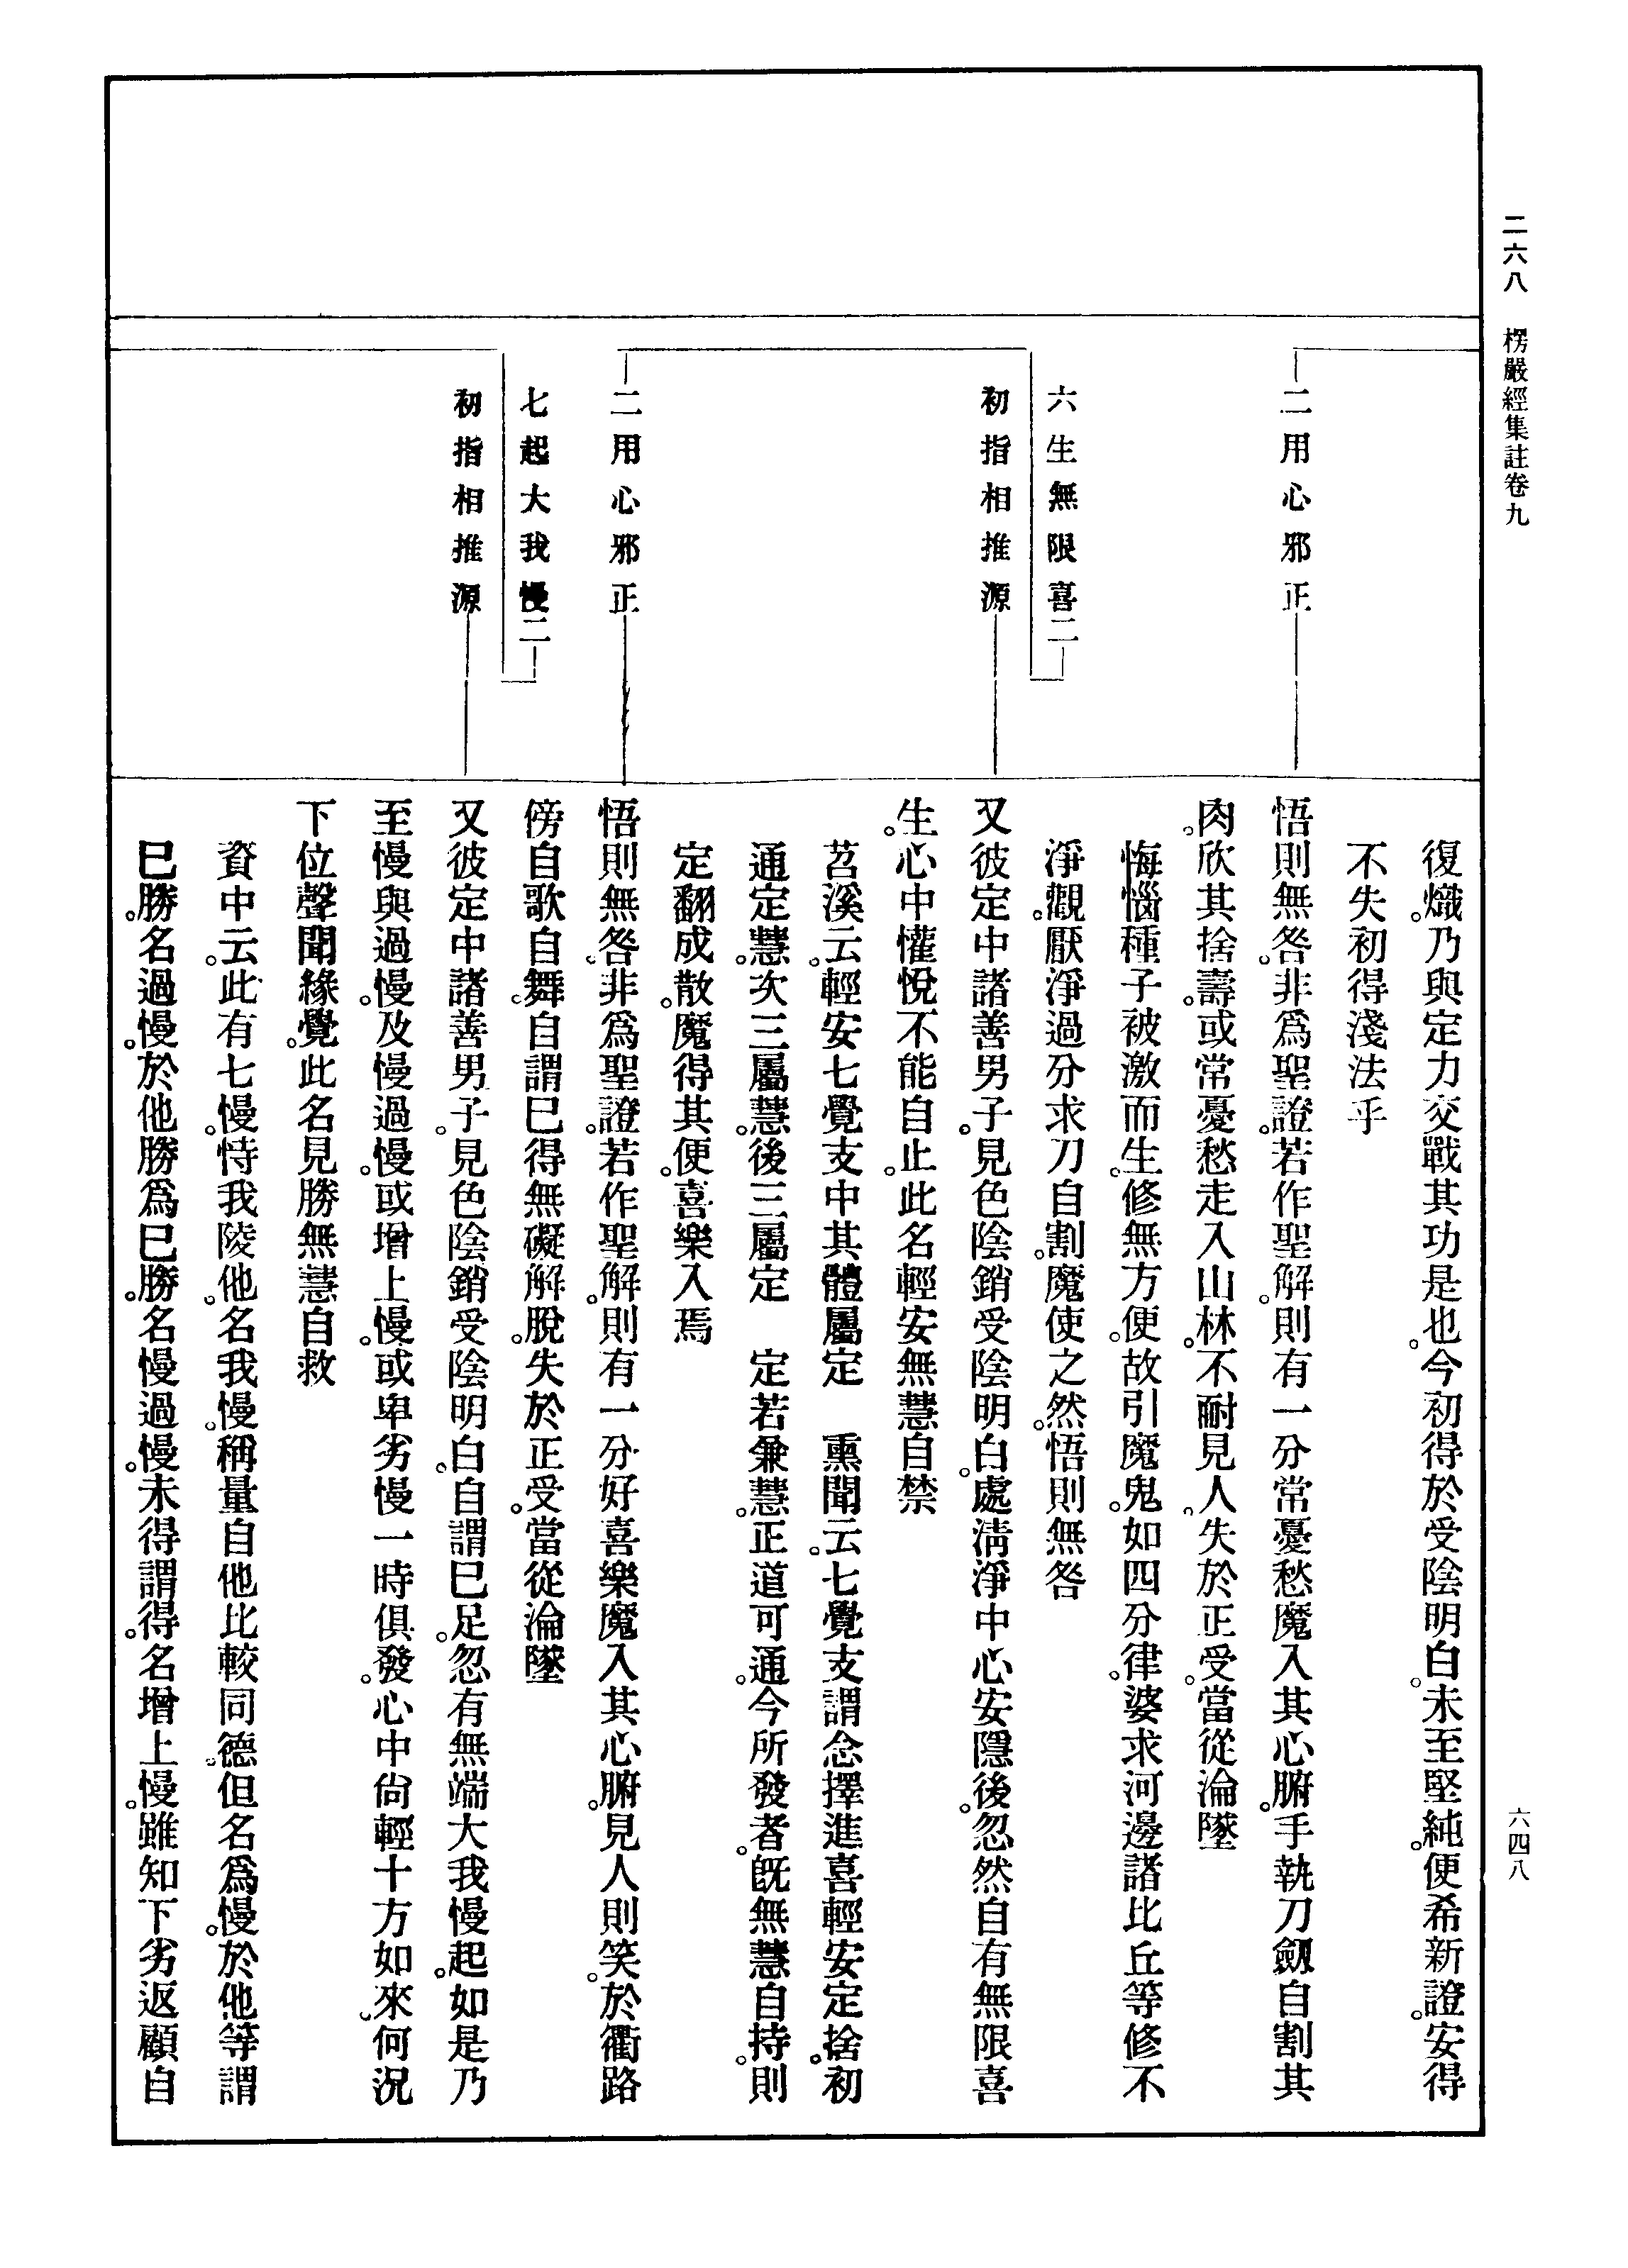 二六八 楞嚴經集註卷九
六四八
二用心邪正
六生無限喜二
初指相推源
二用心邪正
七起大我慢二
初指相推源
復熾。乃與定力交戰其功是也。今初得於受陰明白。未至堅純。便希新證。安得
不失初得淺法乎
悟則無咎。非爲聖證。若作聖解。則有一分常憂愁魔入其心腑。手執刀劒自割其
肉。欣其捨壽。或常憂愁走入山林。不耐見人。失於正受。當從淪墜
悔惱種子被激而生。修無方便。故引魔鬼。如四分律。婆求河邊諸比丘等修不
淨觀。厭淨過分求刀自割。魔使之然。悟則無咎
又彼定中諸善男子。見色陰銷受陰明白。處淸淨中心安隱後。忽然自有無限喜
生。心中懽悅不能自止。此名輕安無慧自禁
苕溪云。輕安七覺支中其體屬定 熏聞云。七覺支謂念擇進喜輕安定捨。初
通定慧。次三屬慧。後三屬定 定若兼慧。正道可通。今所發者。旣無慧自持。則
定翻成散。魔得其便。喜樂入焉
悟則無咎。非爲聖證。若作聖解。則有一分好喜樂魔入其心腑。見人則笑。於衢路
傍自歌自舞。自謂已得無礙解脫。失於正受。當從淪墜
又彼定中諸善男子。見色陰銷受陰明白。自謂已足。忽有無端大我慢起。如是乃
至慢與過慢。及慢過慢。或增上慢。或卑劣慢一時俱發。心中尙輕十方如來。何況
下位聲聞緣覺。此名見勝無慧自救
資中云。此有七慢。恃我陵他。名我慢。稱量自他比較同德。但名爲慢。於他等謂
已勝。名過慢。於他勝爲已勝。名慢過慢。未得謂得。名增上慢。雖知下劣返顧自